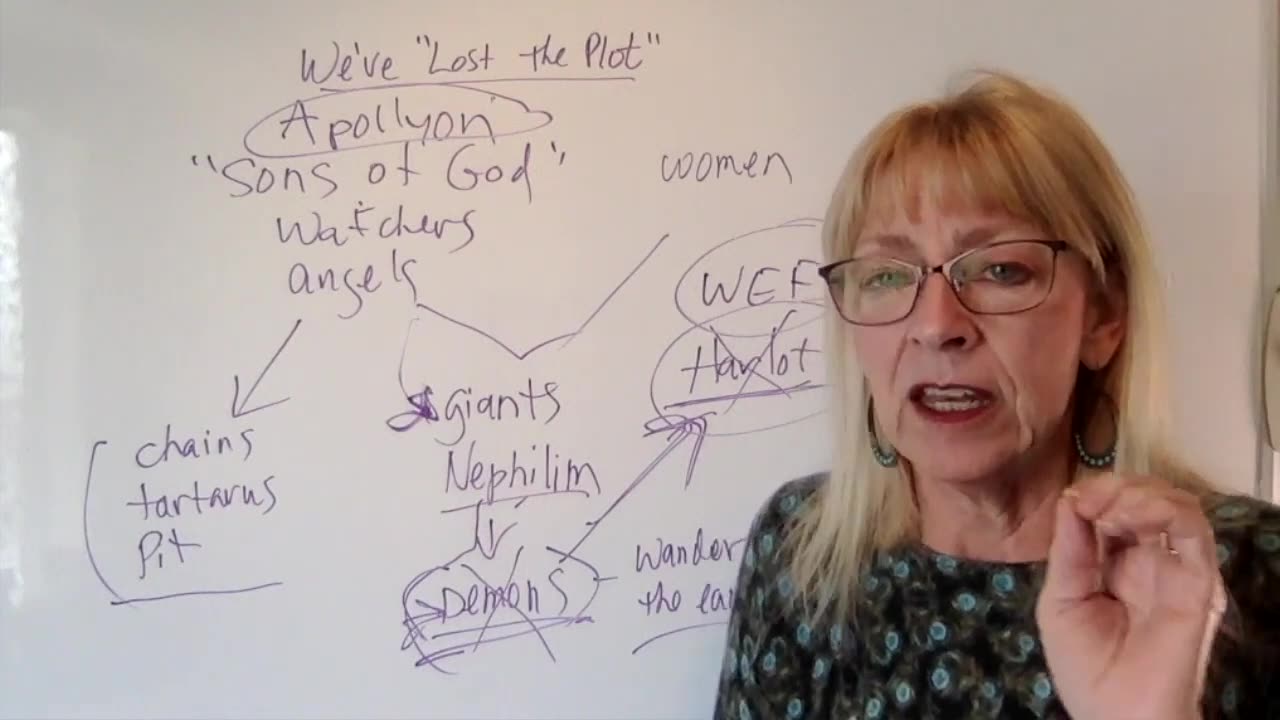 We've "Lost the Plot"
Apollyon
"Sons of God"
Watchers
angels
women
WEF
Harlot
giants
Nephilim
Demons
chains
tartarus
Pit
Wander
the